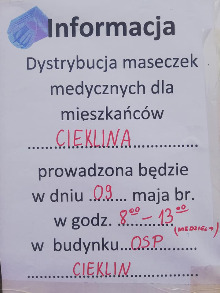 Informacja
Dystrybucja maseczek
medycznych dla
mieszkańców
CIEKLINA
prowadzona będzie
w dniu 09 maja br.
w godz. 8⁰⁰ – 13⁰⁰
(NIEDZIELA)
w budynku OSP
CIEKLIN